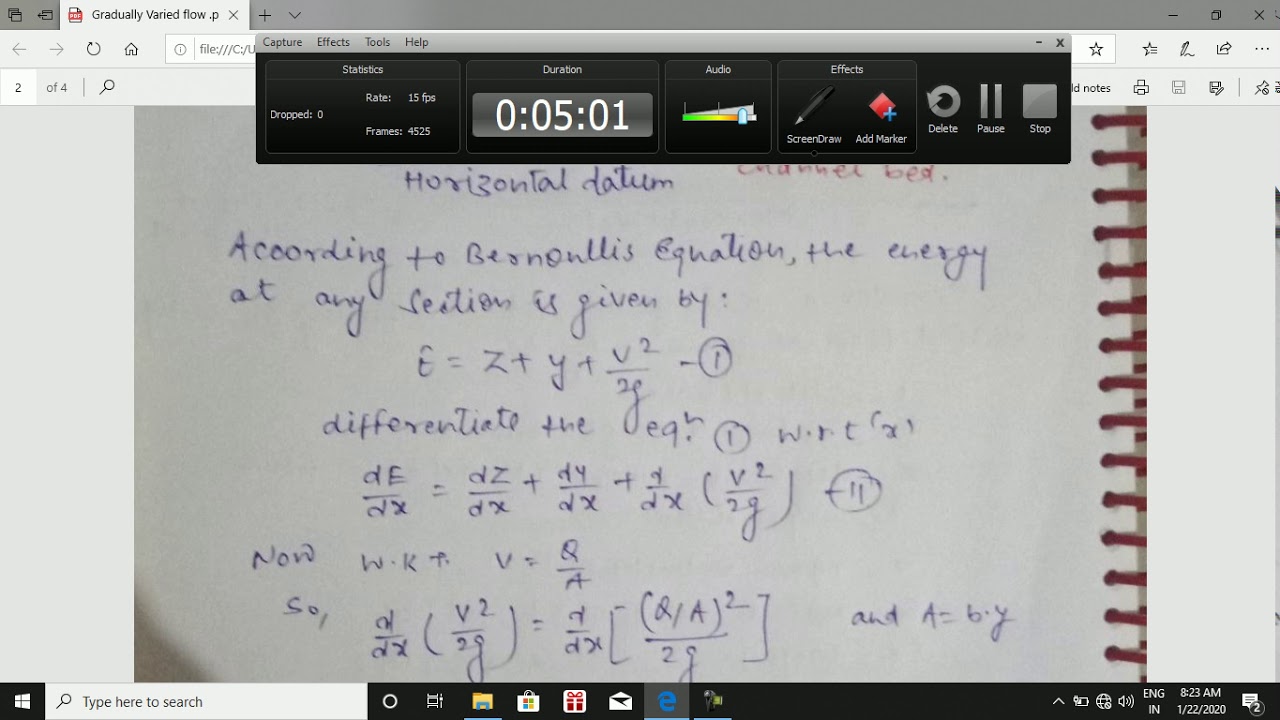 Gradually Varied flow .p
file:///C:/U
2 of 4
dd notes
Capture Effects Tools Help
Statistics
Duration
Audio
Effects
Rate: 15 fps
Dropped: 0
Frames: 4525
0:05:01
ScreenDraw
Add Marker
Delete
Pause
Stop
Horizontal datum
channel bed.
Acoording to Bernoullis Equation, the energy
at any Section is given by:
E = Z + y + V²/2g - (I)
differentiate the eqⁿ. (I) w.r.t (x)
dE/dx = dZ/dx + dy/dx + d/dx (V²/2g) - (II)
Now w.k.t. V = Q/A
So, d/dx (V²/2g) = d/dx [(Q/A)²/2g] and A = b.y
Type here to search
ENG
IN
8:23 AM
1/22/2020
2